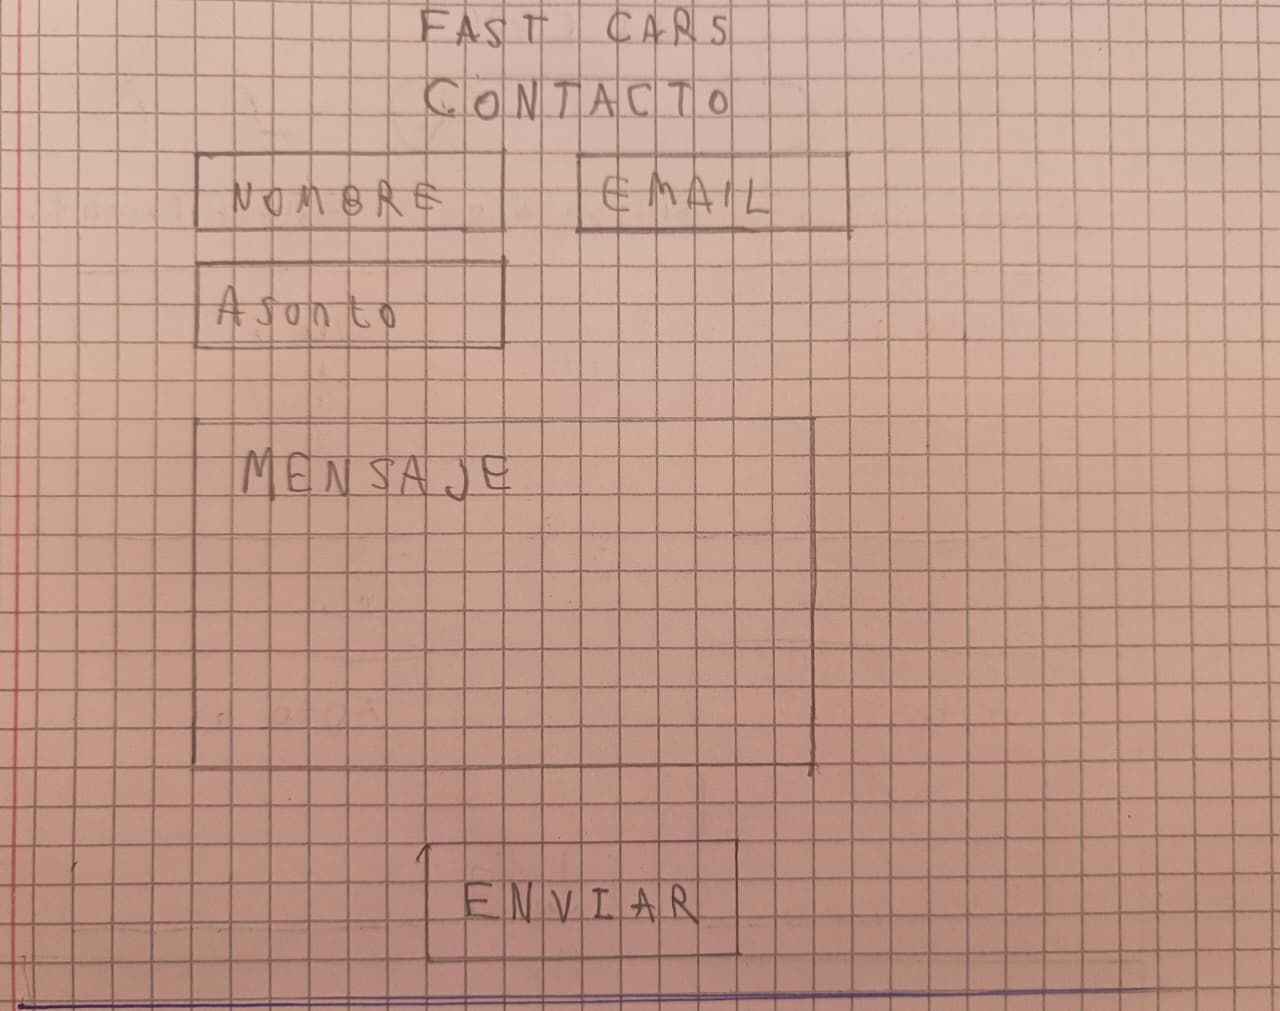 FAST CARS
CONTACTO
NOMBRE EMAIL
Asonto
MENSAJE
ENVIAR